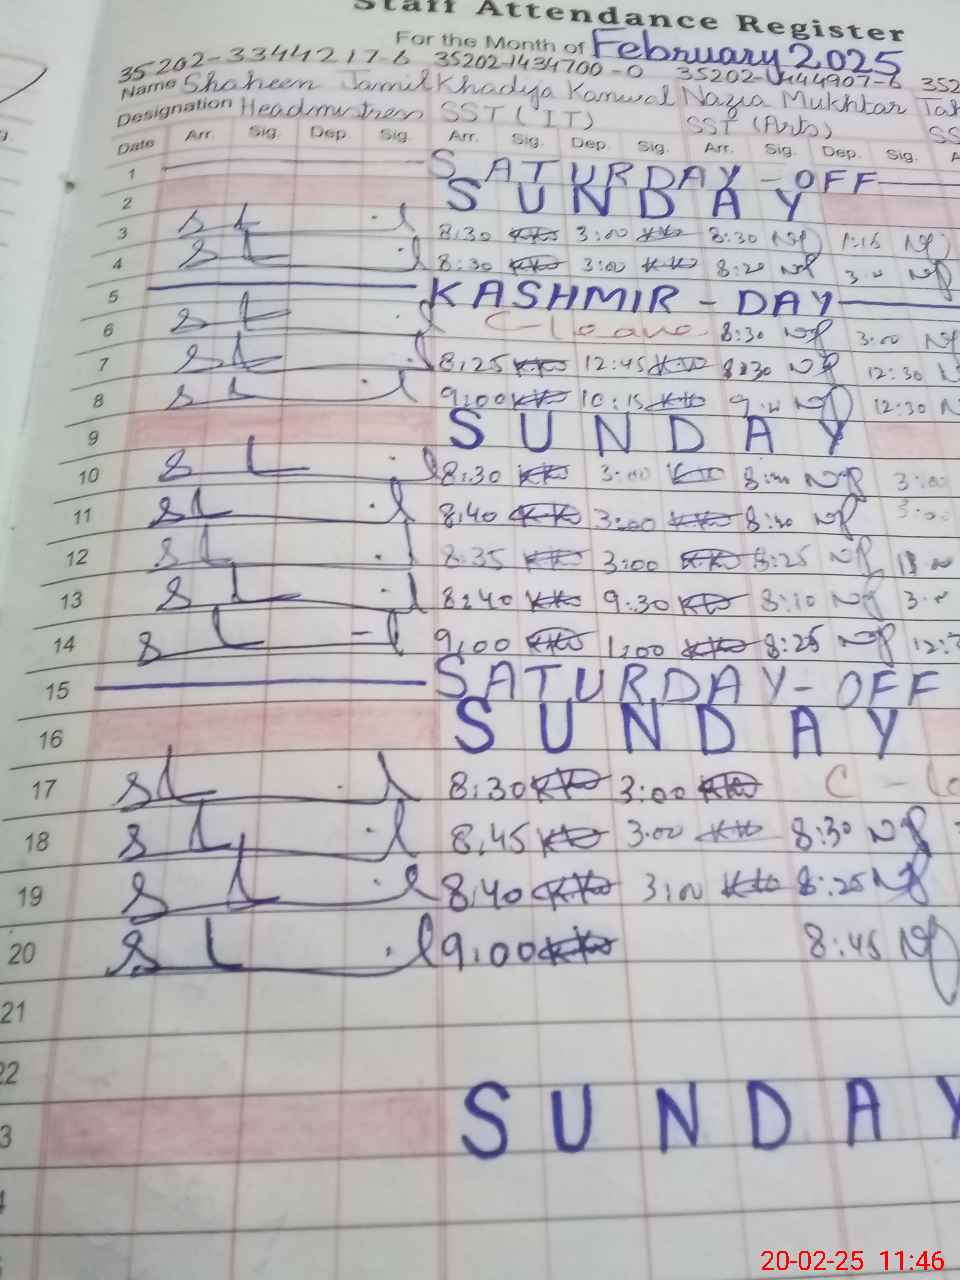 Staff Attendance Register
For the Month of February 2025
35202-3344217-6 35202-1434700-0 35202-0444907-6 352
Name Shaheen Jamil Khadija Kanwal Nazia Mukhtar Tah
Designation Headmistress SST (IT) SST (Arts) SS
Date Arr. Sig. Dep. Sig. Arr. Sig. Dep. Sig. Arr. Sig. Dep. Sig. A
1 SATURDAY - OFF
2 SUNDAY
3 8:30 3:00 8:30 1:15
4 8:30 3:00 8:20
5 KASHMIR - DAY
6 C-leave 8:30 3:00
7 8:25 12:45 8:30 12:30
8 9:00 10:15 12:30
9 SUNDAY
10 8:30 3:00 3:00
11 8:40 3:00 3:00
12 8:35 3:00 8:25
13 8:40 9:30 8:10
14 9:00 1:00 8:25 12:
15 SATURDAY - OFF
16 SUNDAY
17 8:30 3:00 C - le
18 8:45 3:00 8:30
19 8:40 3:00 8:25
20 9:00 8:45
21
22
3 SUNDAY
4
20-02-25 11:46